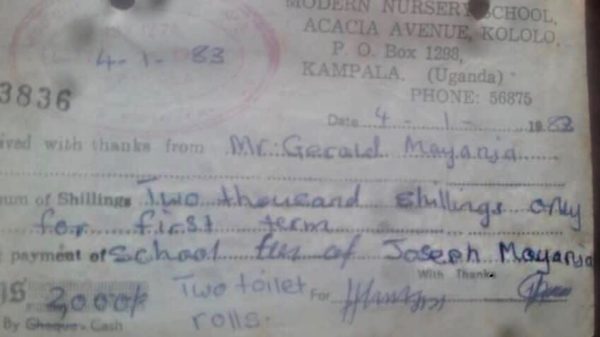 MODERN NURSERY SCHOOL,
ACACIA AVENUE, KOLOLO,
P. O. Box 1298,
KAMPALA. (Uganda)
PHONE: 56875
4-1-83
3836
Date 4-1-1983
ived with thanks from Mr. Gerald Mayanja
um of Shillings Two thousand shillings only
for first term
payment of School fees of Joseph Mayanja
With Thanks
2000/= Two toilet For
By Cheque - Cash rolls.